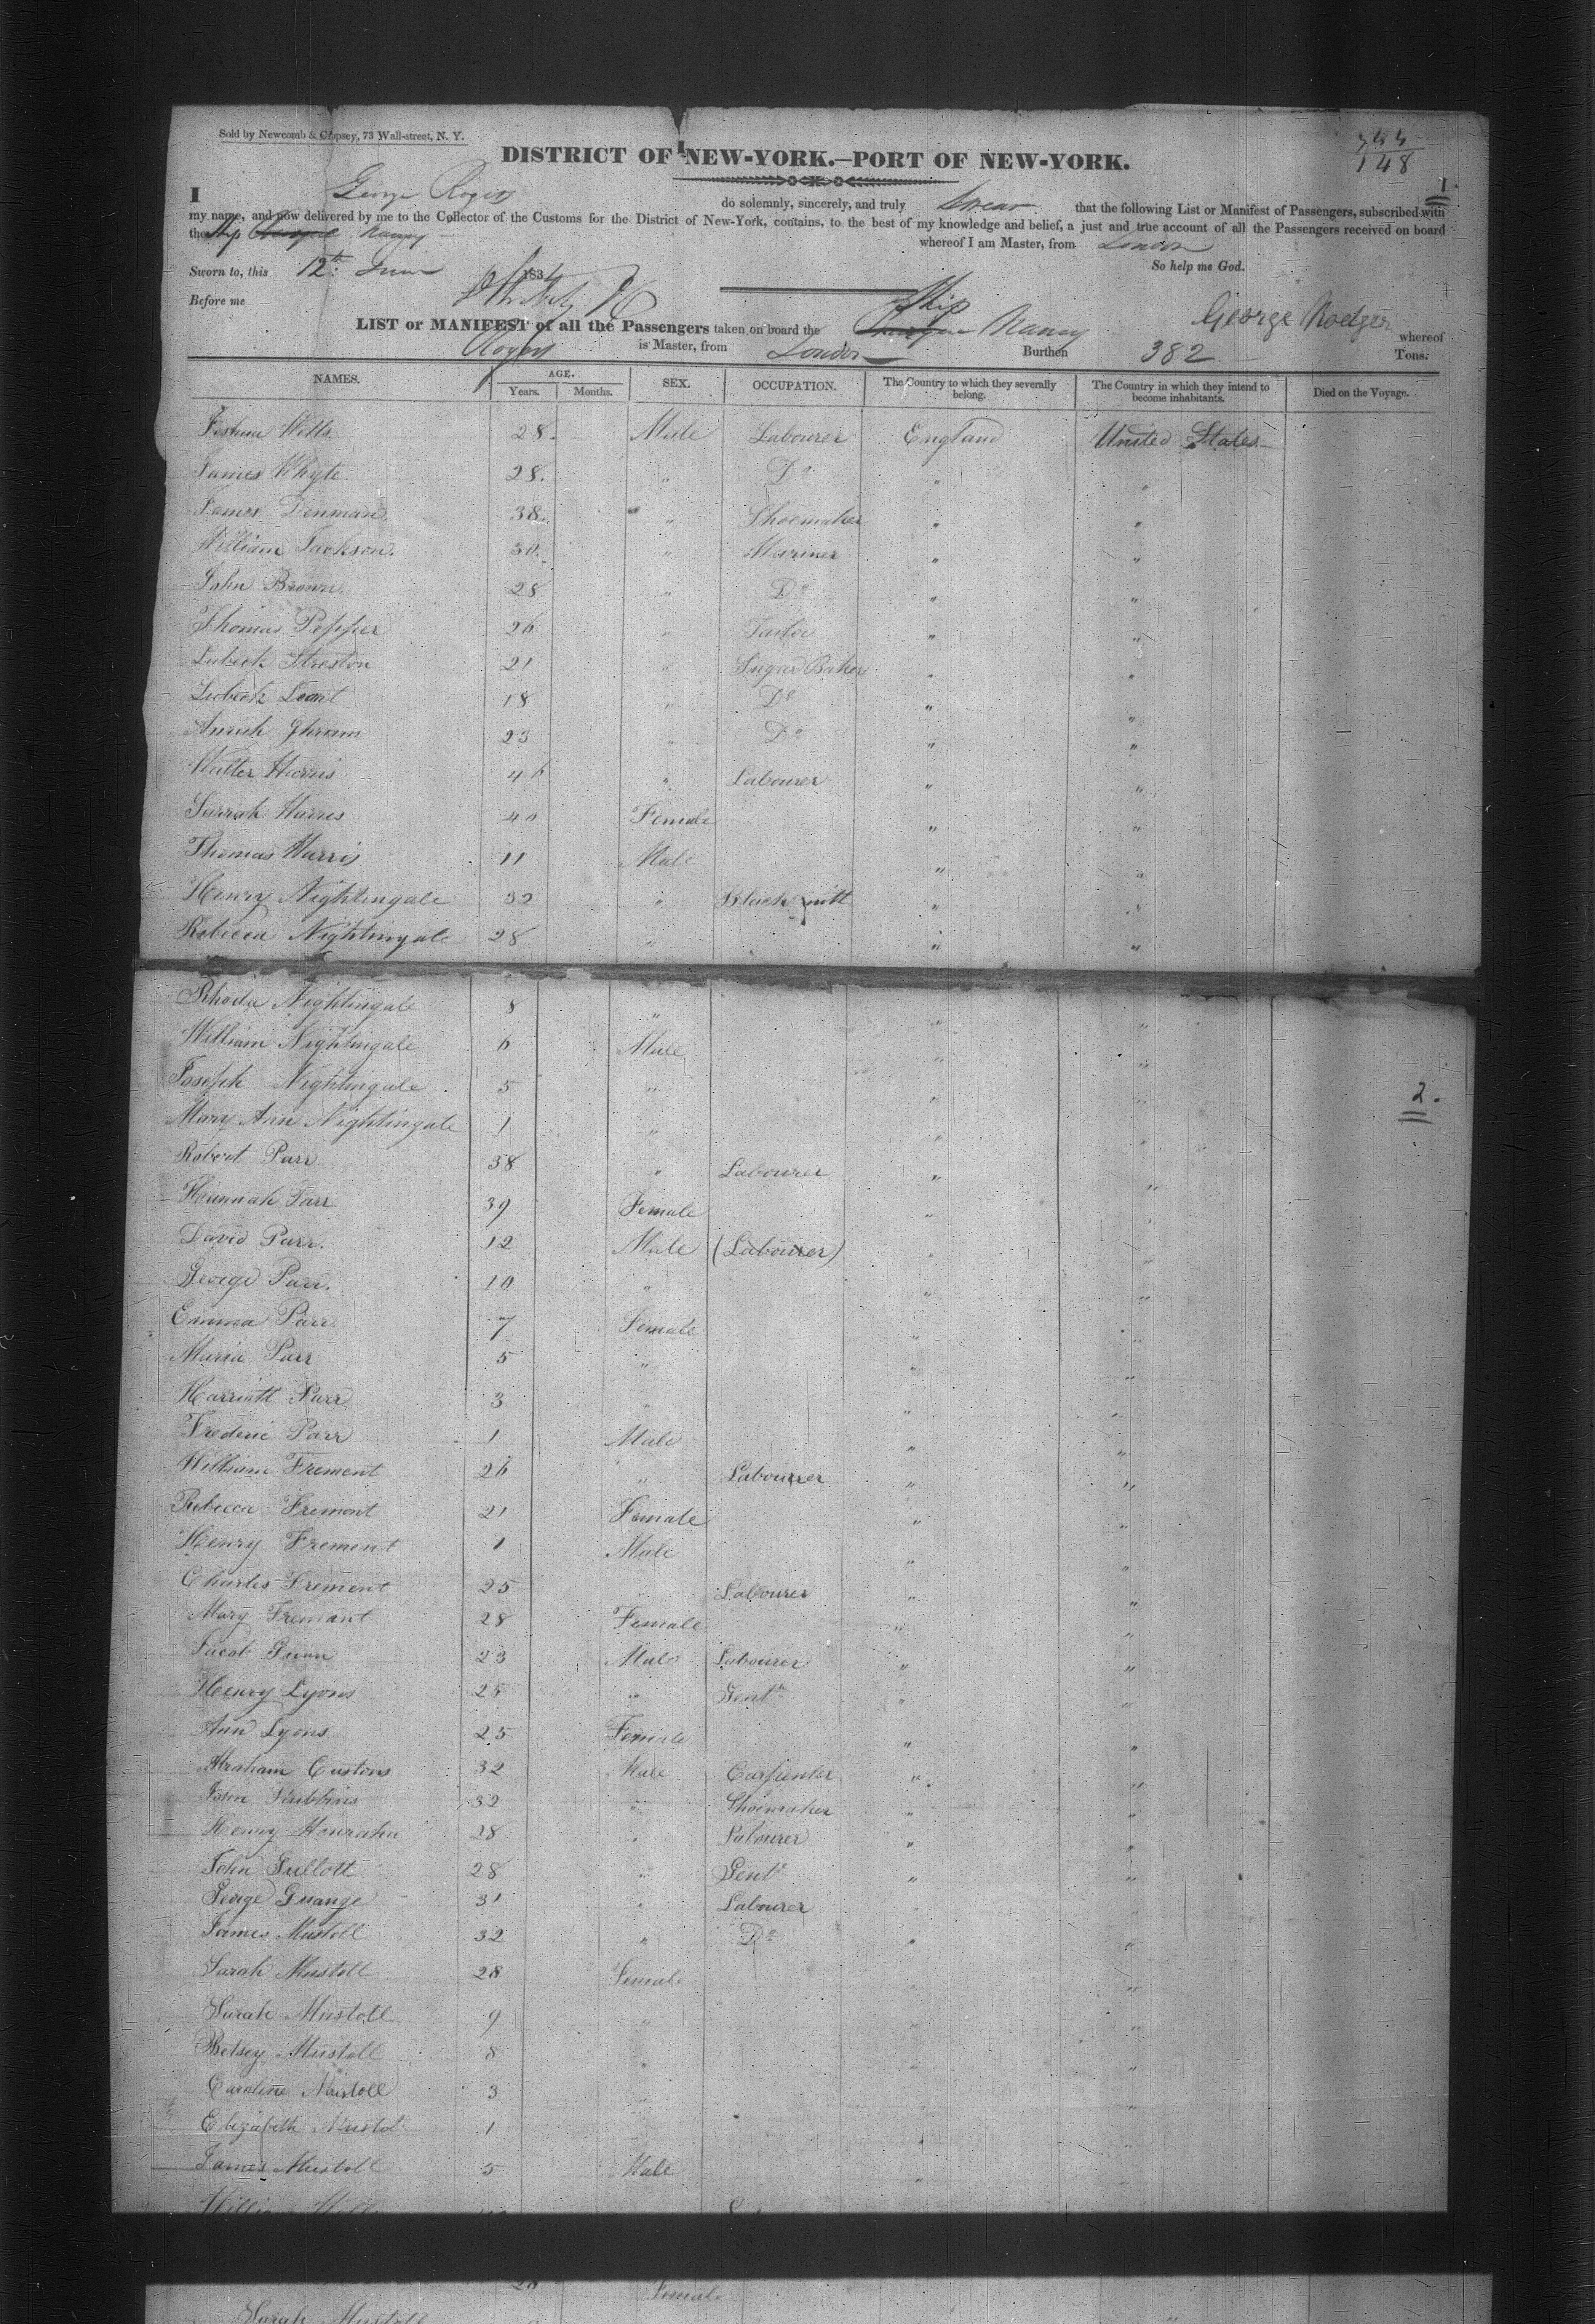 Sold by Newcomb & Copsey, 73 Wall-street, N. Y.
344
148
DISTRICT OF NEW-YORK.—PORT OF NEW-YORK.
1.
I George Rogers do solemnly, sincerely, and truly Swear that the following List or Manifest of Passengers, subscribed with
my name, and now delivered by me to the Collector of the Customs for the District of New-York, contains, to the best of my knowledge and belief, a just and true account of all the Passengers received on board
the Ship Nancy whereof I am Master, from London
Sworn to, this 12th June 183 So help me God.
Before me
LIST or MANIFEST of all the Passengers taken on board the Ship Nancy George Rodger whereof
Rogers is Master, from London Burthen 382 Tons.
NAMES. AGE. Years. Months. SEX. OCCUPATION. The Country to which they severally belong. The Country in which they intend to become inhabitants. Died on the Voyage.
Joshua Wells 28. Male Labourer England United States
James Whyte 28. " Do " "
James Denman. 38. " Shoemaker " "
William Jackson. 30. " Mariner " "
John Brown. 28 " Do " "
Thomas Pepper 26 " Tailor " "
Lubeck Streston 21 " Sugar Baker " "
Lubeck 18 " Do " "
23 " Do " "
Walter Harris 46 " Labourer " "
Sarrah Harris 40 Female " "
Thomas Harris 11 Male " "
Henry Nightingale 32 " Blacksmith " "
Rebecca Nightingale 28 " " "
Rhoda Nightingale 8 " " "
William Nightingale 6 Male " "
Joseph Nightingale 5 " " "
2.
Mary Ann Nightingale 1 " " "
Robert Parr 38 " Labourer " "
Hannah Parr 39 Female " "
David Parr. 12 Male (Labourer) " "
George Parr. 10 " " "
Emma Parr. 7 Female " "
Maria Parr 5 " " "
Harriott Parr 3 " " "
Frederic Parr 1 Male " "
William Frement 26 " Labourer " "
Rebecca Fremont 21 Female " "
Henry Frement 1 Male " "
Charles Frement 25 " Labourer " "
Mary Fremant 28 Female " "
Jacob Gunn 23 Male Labourer " "
Henry Lyons 25 " Gentn " "
Ann Lyons 25 Female " "
Abraham Custons 32 Male Carpenter " "
John 32 " Shoemaker " "
Henry 28 " Labourer " "
John Gullott 28 " Gentn " "
George Grange 31 " Labourer " "
James Mustoll 32 " Do " "
Sarah Mustoll 28 Female " "
Sarah Mustoll 9 " " "
Betsey Mustoll 8 " " "
Caroline Mustoll 3 " " "
Elizabeth Mustoll 1 " "
James Mustoll 5 Male "
William
28 Female
Sarah Mustoll "